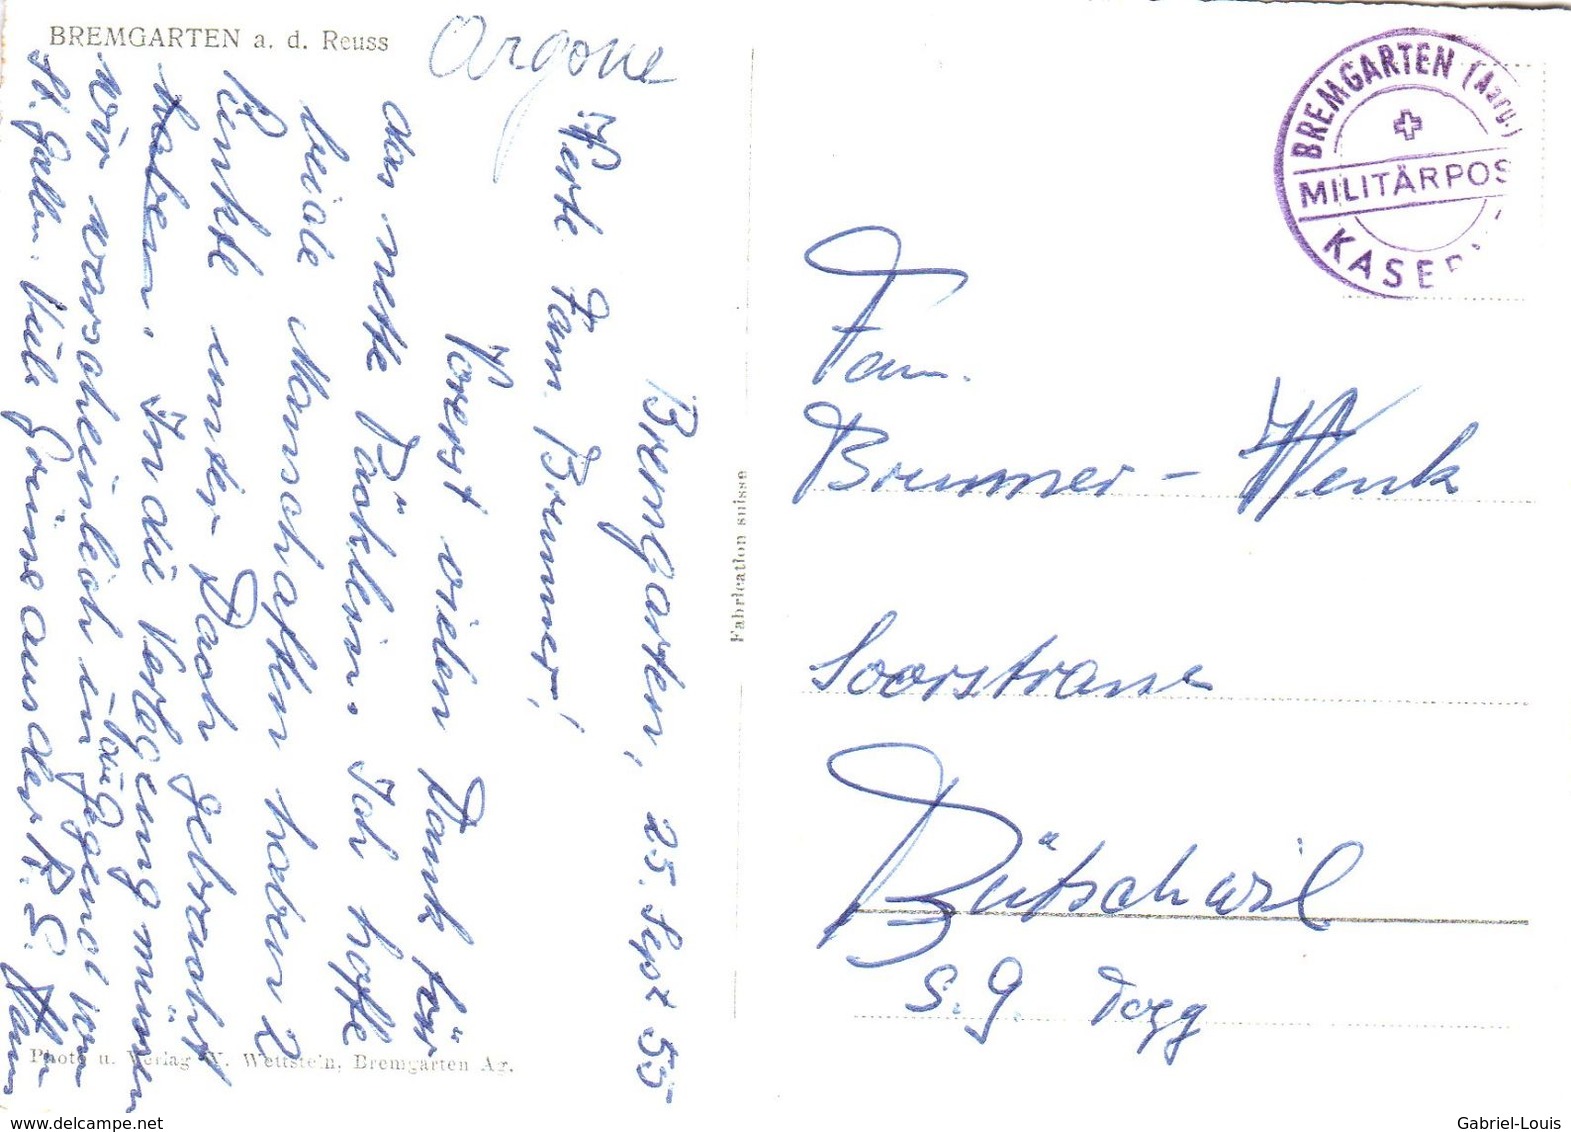 BREMGARTEN a. d. Reuss
Argone
Bremgarten, 25. Sept 55
Werte Fam Brunner!
Vorerst vielen Dank für
das nette Päcklein. Ich hoffe
beide Manschaften haben 2
Punkte unter Dach gebracht
haben. In die Verlegung müssen
wir warscheinlich in Gegend vom
St. Gallen. Viele Grüsse aus der R.S.
Photo u. Verlag W. Wettstein, Bremgarten Ag.
Fabrication suisse
BREMGARTEN (Aarg.)
MILITÄRPOS
KASER
Fam.
Brunner-Wenk
Soorstrasse
Bütschwil
S.G. Togg
delcampe.net
Gabriel-Louis